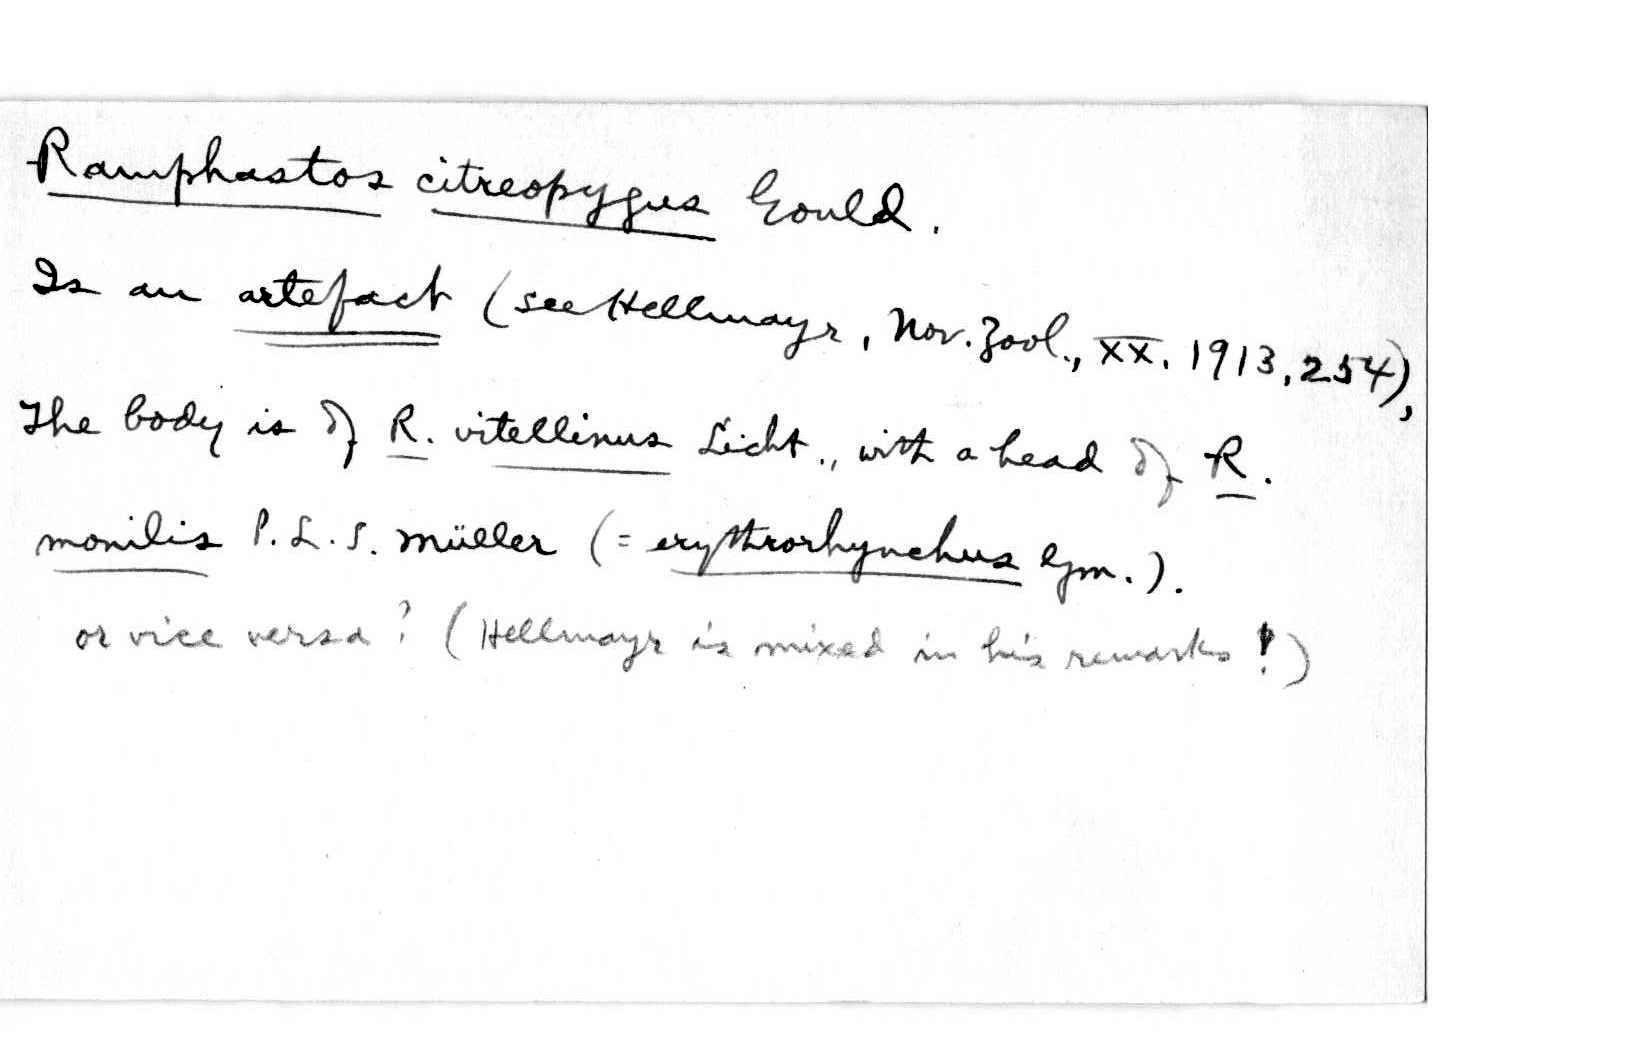 Ramphastos citreopygus Gould.
Is an artefact (see Hellmayr, Nov. Zool., XX. 1913, 254),
The body is of R. vitellinus Licht., with a head of R.
monilis P. L. S. Müller (= erythrorhynchus Gm.).
or vice versa? (Hellmayr is mixed in his remarks!)